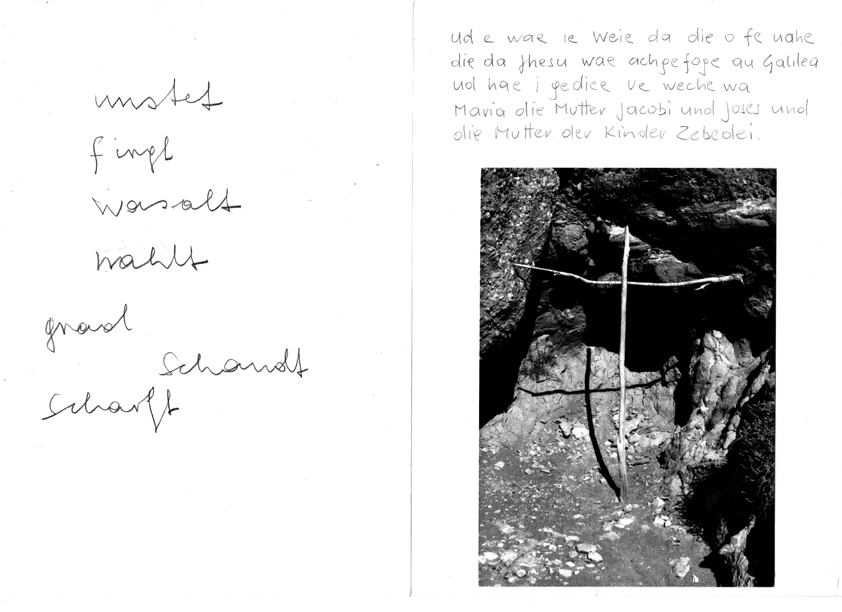 unstet
fingt
wasalt
wahlt
grad
schandt
scharft
ud e wae ie Weie da die o fe nahe
die da Jhesu wae achgefoge au Galilea
ud hae i gedice ve weche wa
Maria die Mutter Jacobi und Joses und
die Mutter der Kinder Zebedei.